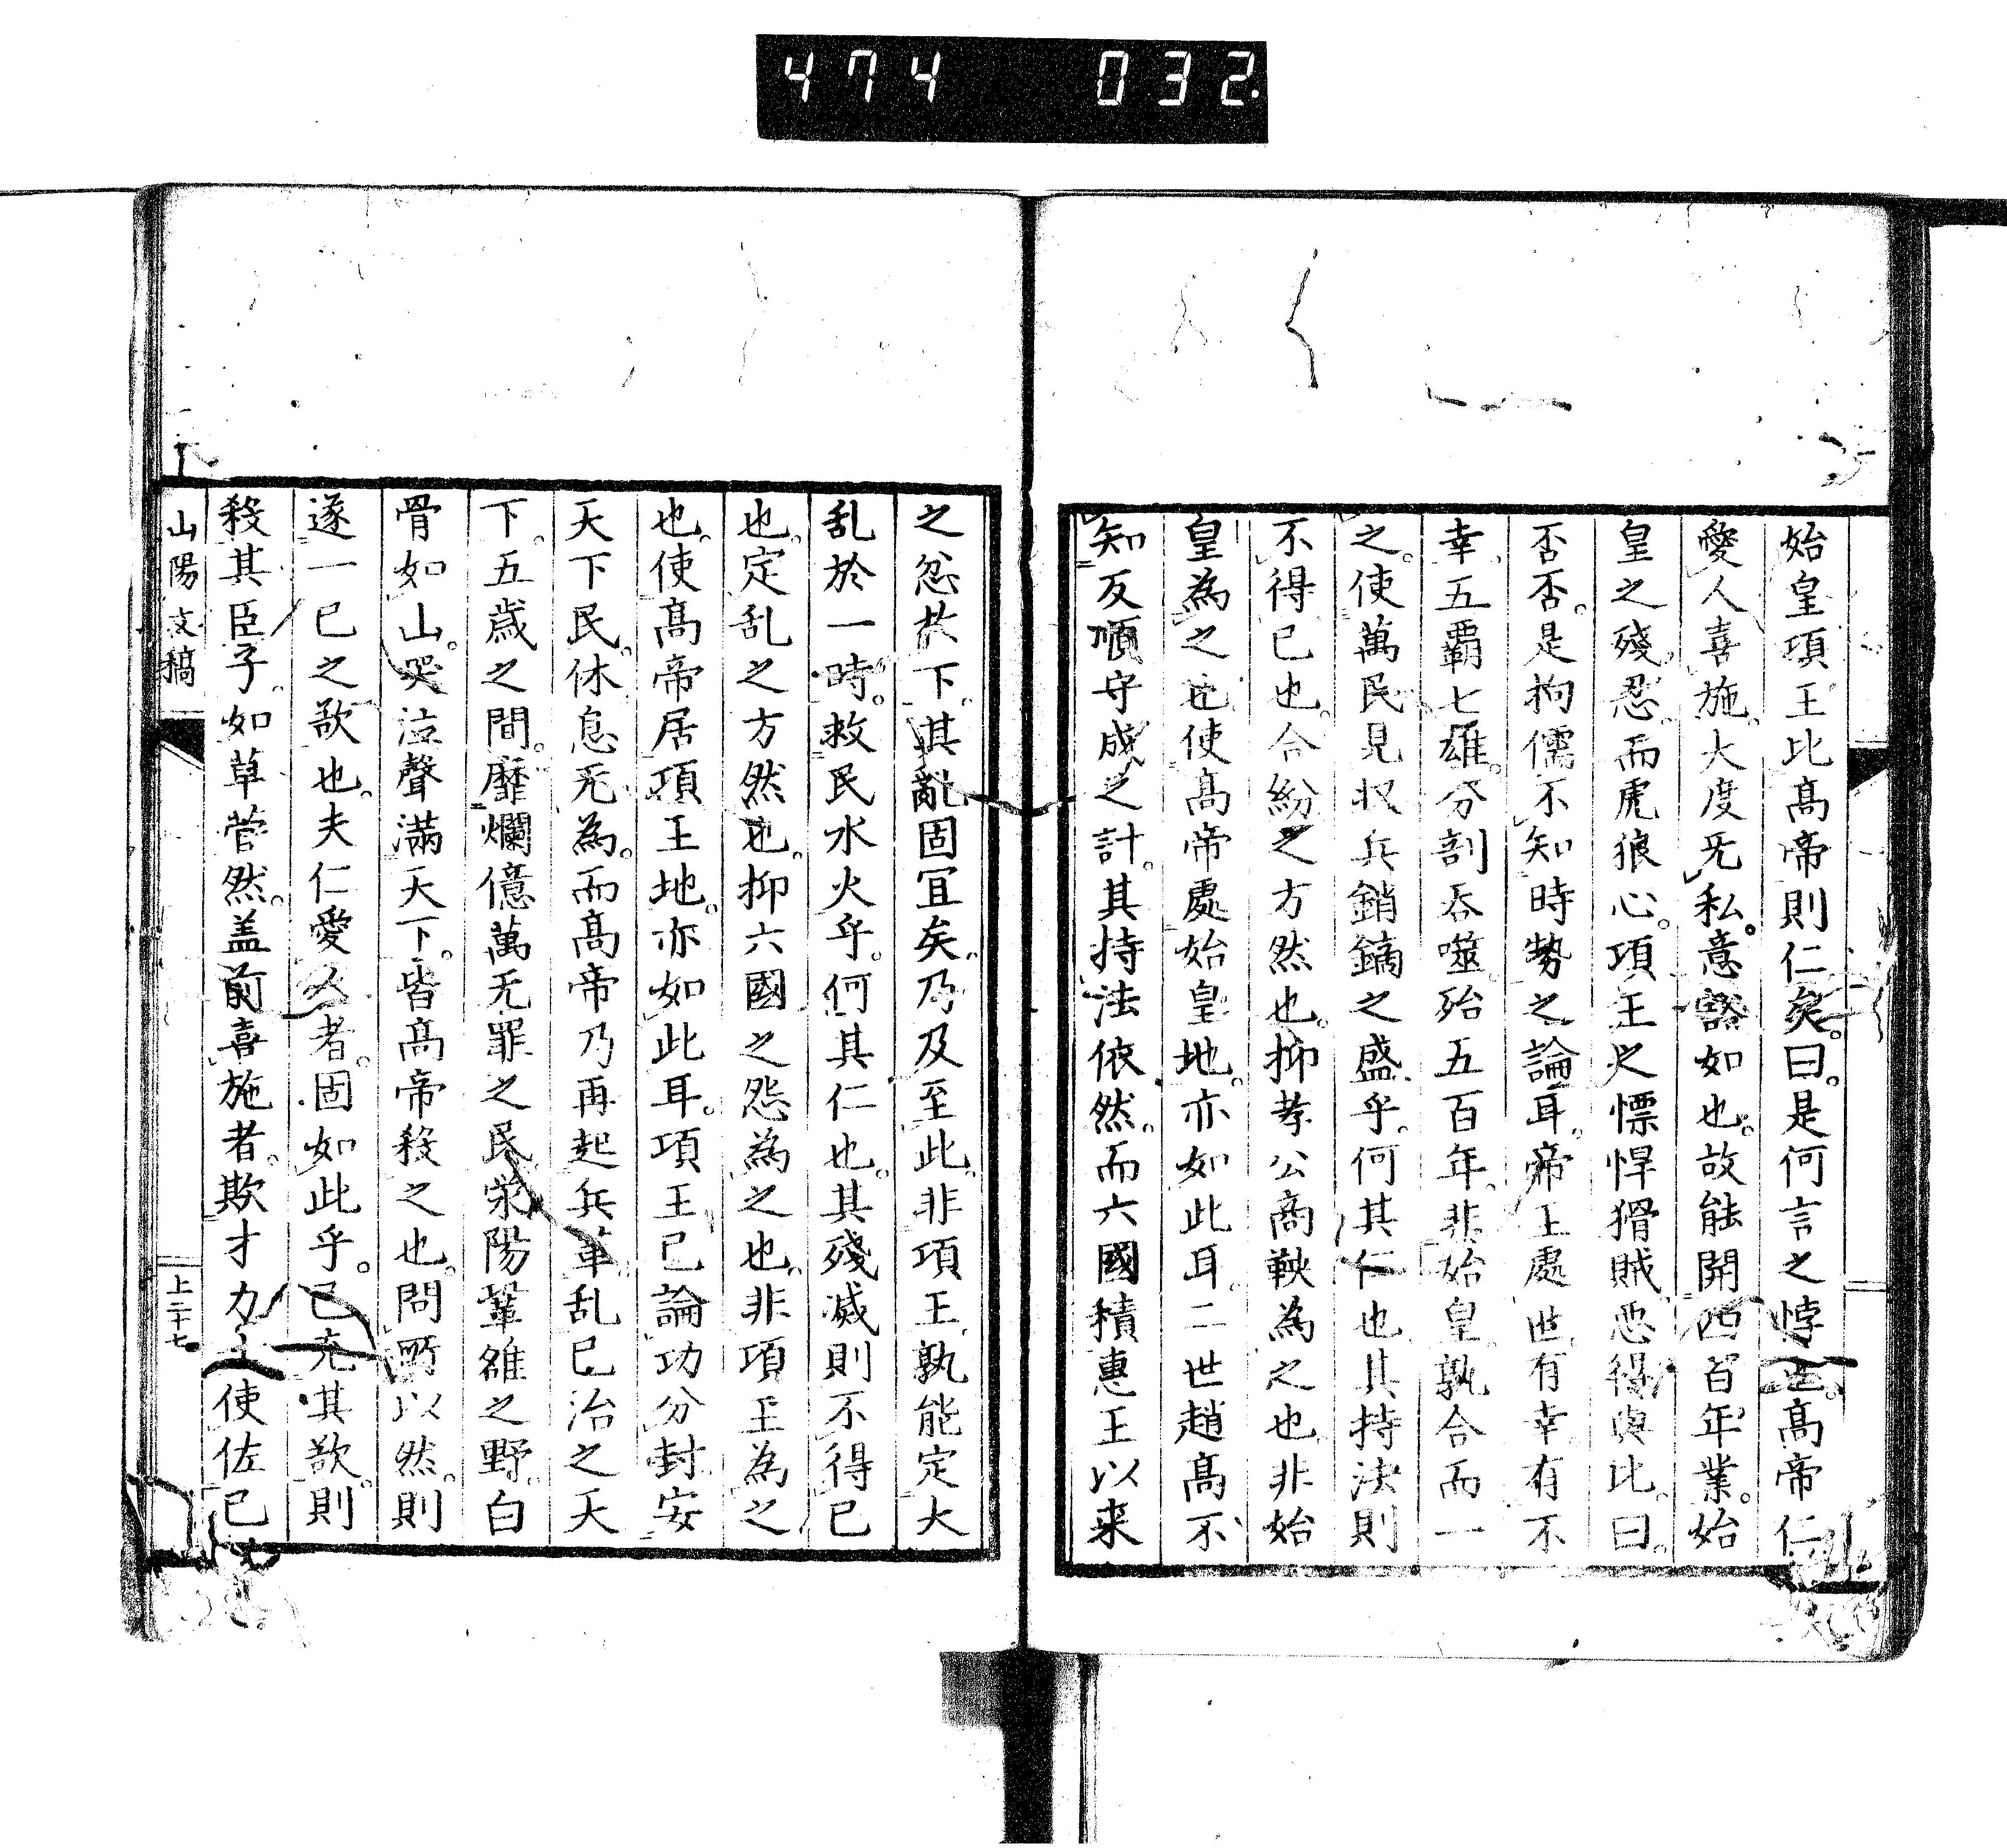 474 032
始皇項王比髙帝則仁矣。曰。是何言之悖也。髙帝仁
愛人喜施。大度旡私。意豁如也。故能開四百年業。始
皇之殘忍。而虎狼心。項王之慓悍猾賊。悪得與比。曰。
否否。是拘儒不知時勢之論耳。帝王處世。有幸有不
幸。五覇七雄。分剖呑噬。殆五百年。非始皇孰合而一
之。使萬民見収兵銷鏑之盛乎。何其仁也。其持法則
不得已也。合紛之方然也。抑孝公商鞅為之也。非始
皇為之也使髙帝處始皇地。亦如此耳。二世趙髙不
知反順守成之計。其持法依然。而六國積惠王以来
之忿於下。其亂固冝矣。乃及至此。非項王孰能定大
乱於一時。救民水火乎。何其仁也。其殘滅則不得已
也。定乱之方然也。抑六國之怨為之也。非項王為之
也。使髙帝居項王地。亦如此耳。項王已論功分封安
天下民。休息旡為。而髙帝乃再起兵革。乱已治之天
下。五歳之間。靡爛億萬旡罪之民。滎陽鞏雒之野。白
骨如山。哭泣聲満天下。皆髙帝殺之也。問所以然。則
遂一己之欲也。夫仁愛人者。固如此乎。已充其欲。則
殺其臣子。如草菅然。盖前喜施者。欺才力士使佐已
山陽文稿
上二十七